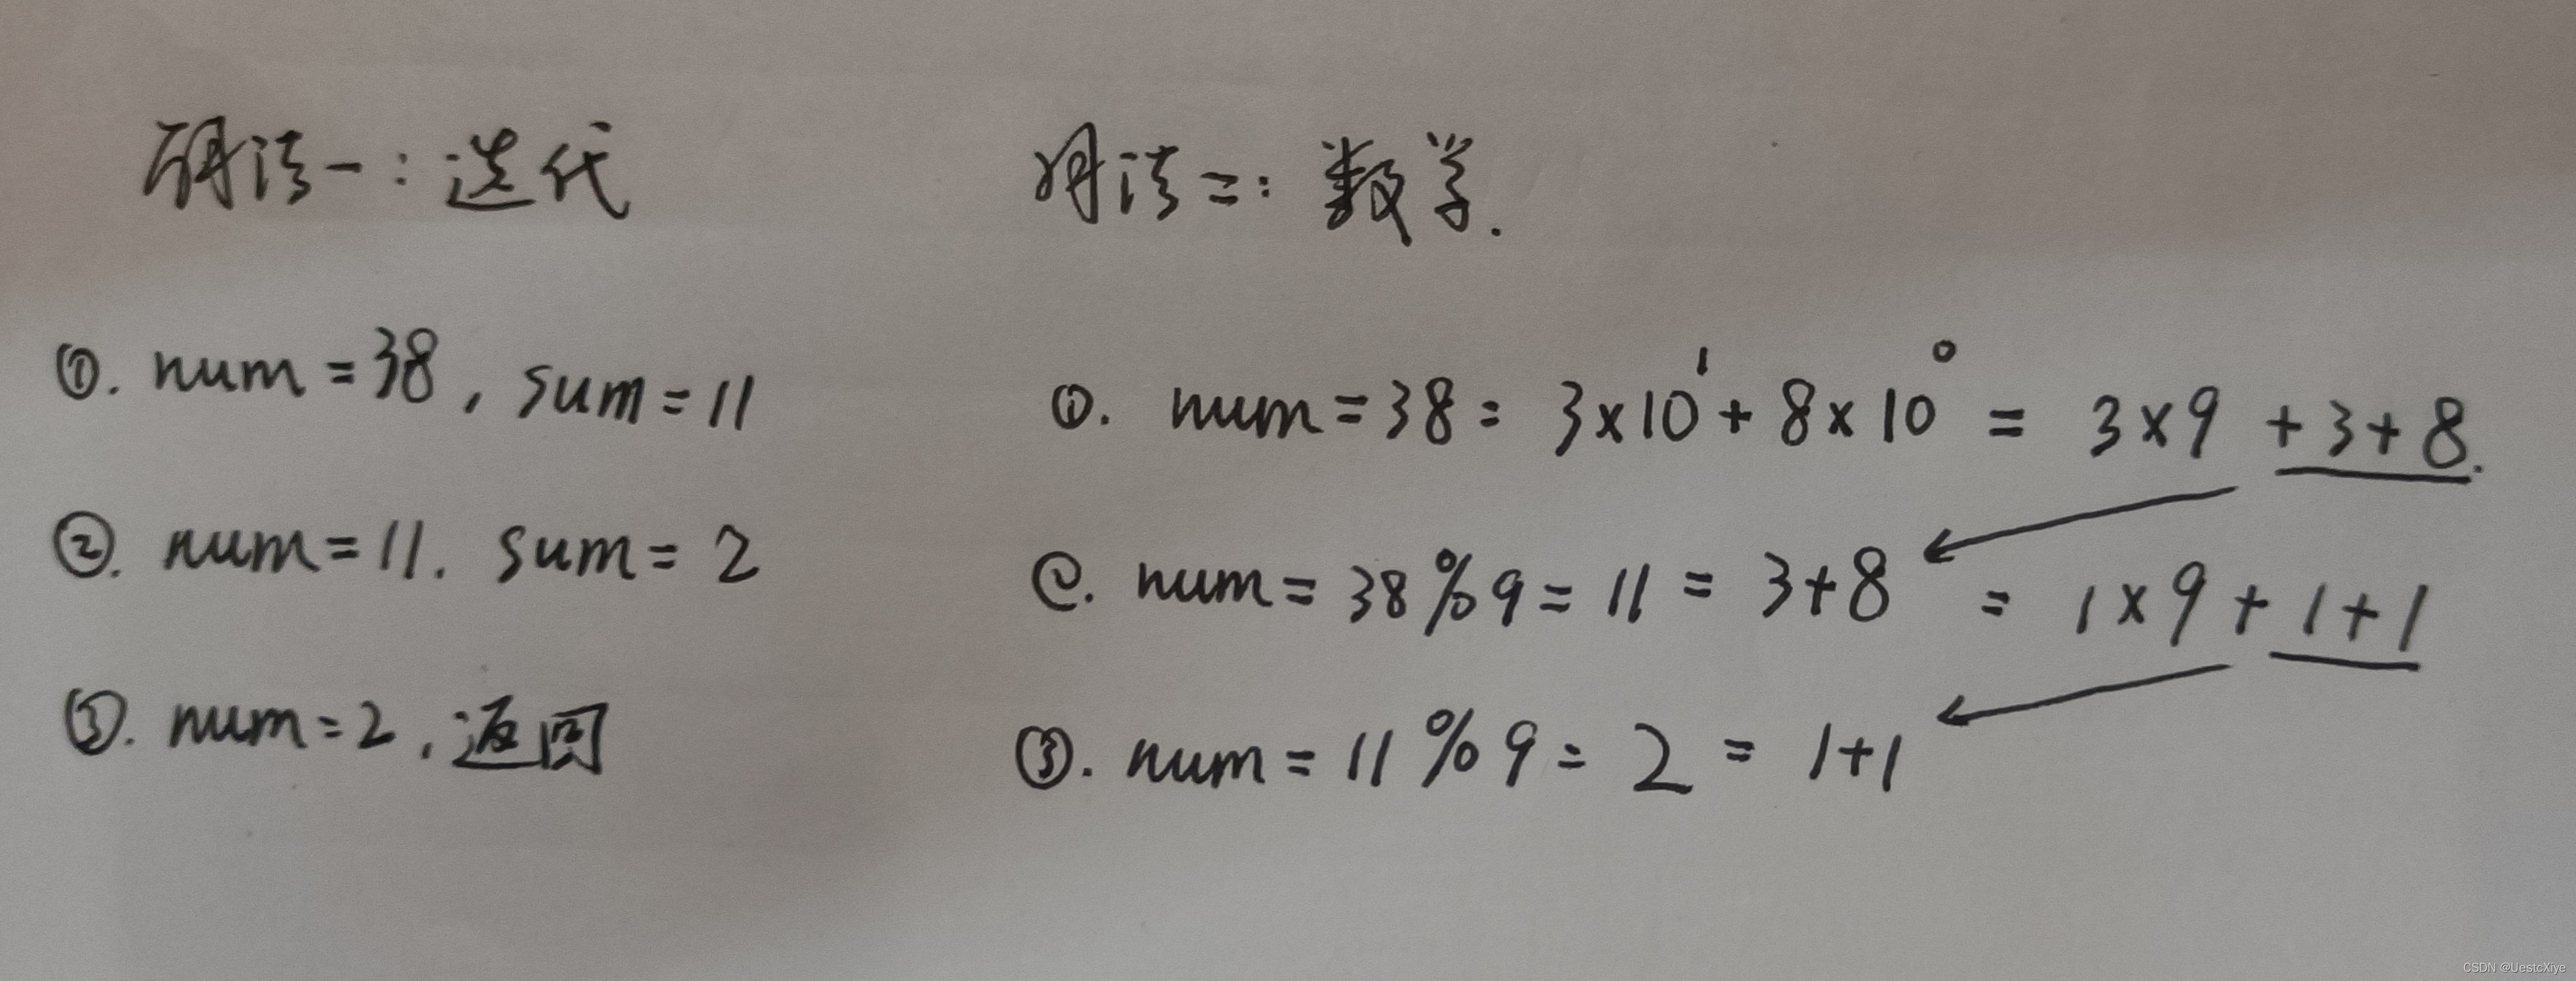 解法一：迭代
①. num = 38, sum = 11
②. num = 11. sum = 2
③. num = 2, 返回
解法二：数学.
①. num = 38 = 3×10¹ + 8×10⁰ = 3×9 + 3 + 8.
②. num = 38 % 9 = 11 = 3+8 = 1×9 + 1+1
③. num = 11 % 9 = 2 = 1+1
CSDN @UestcXiye